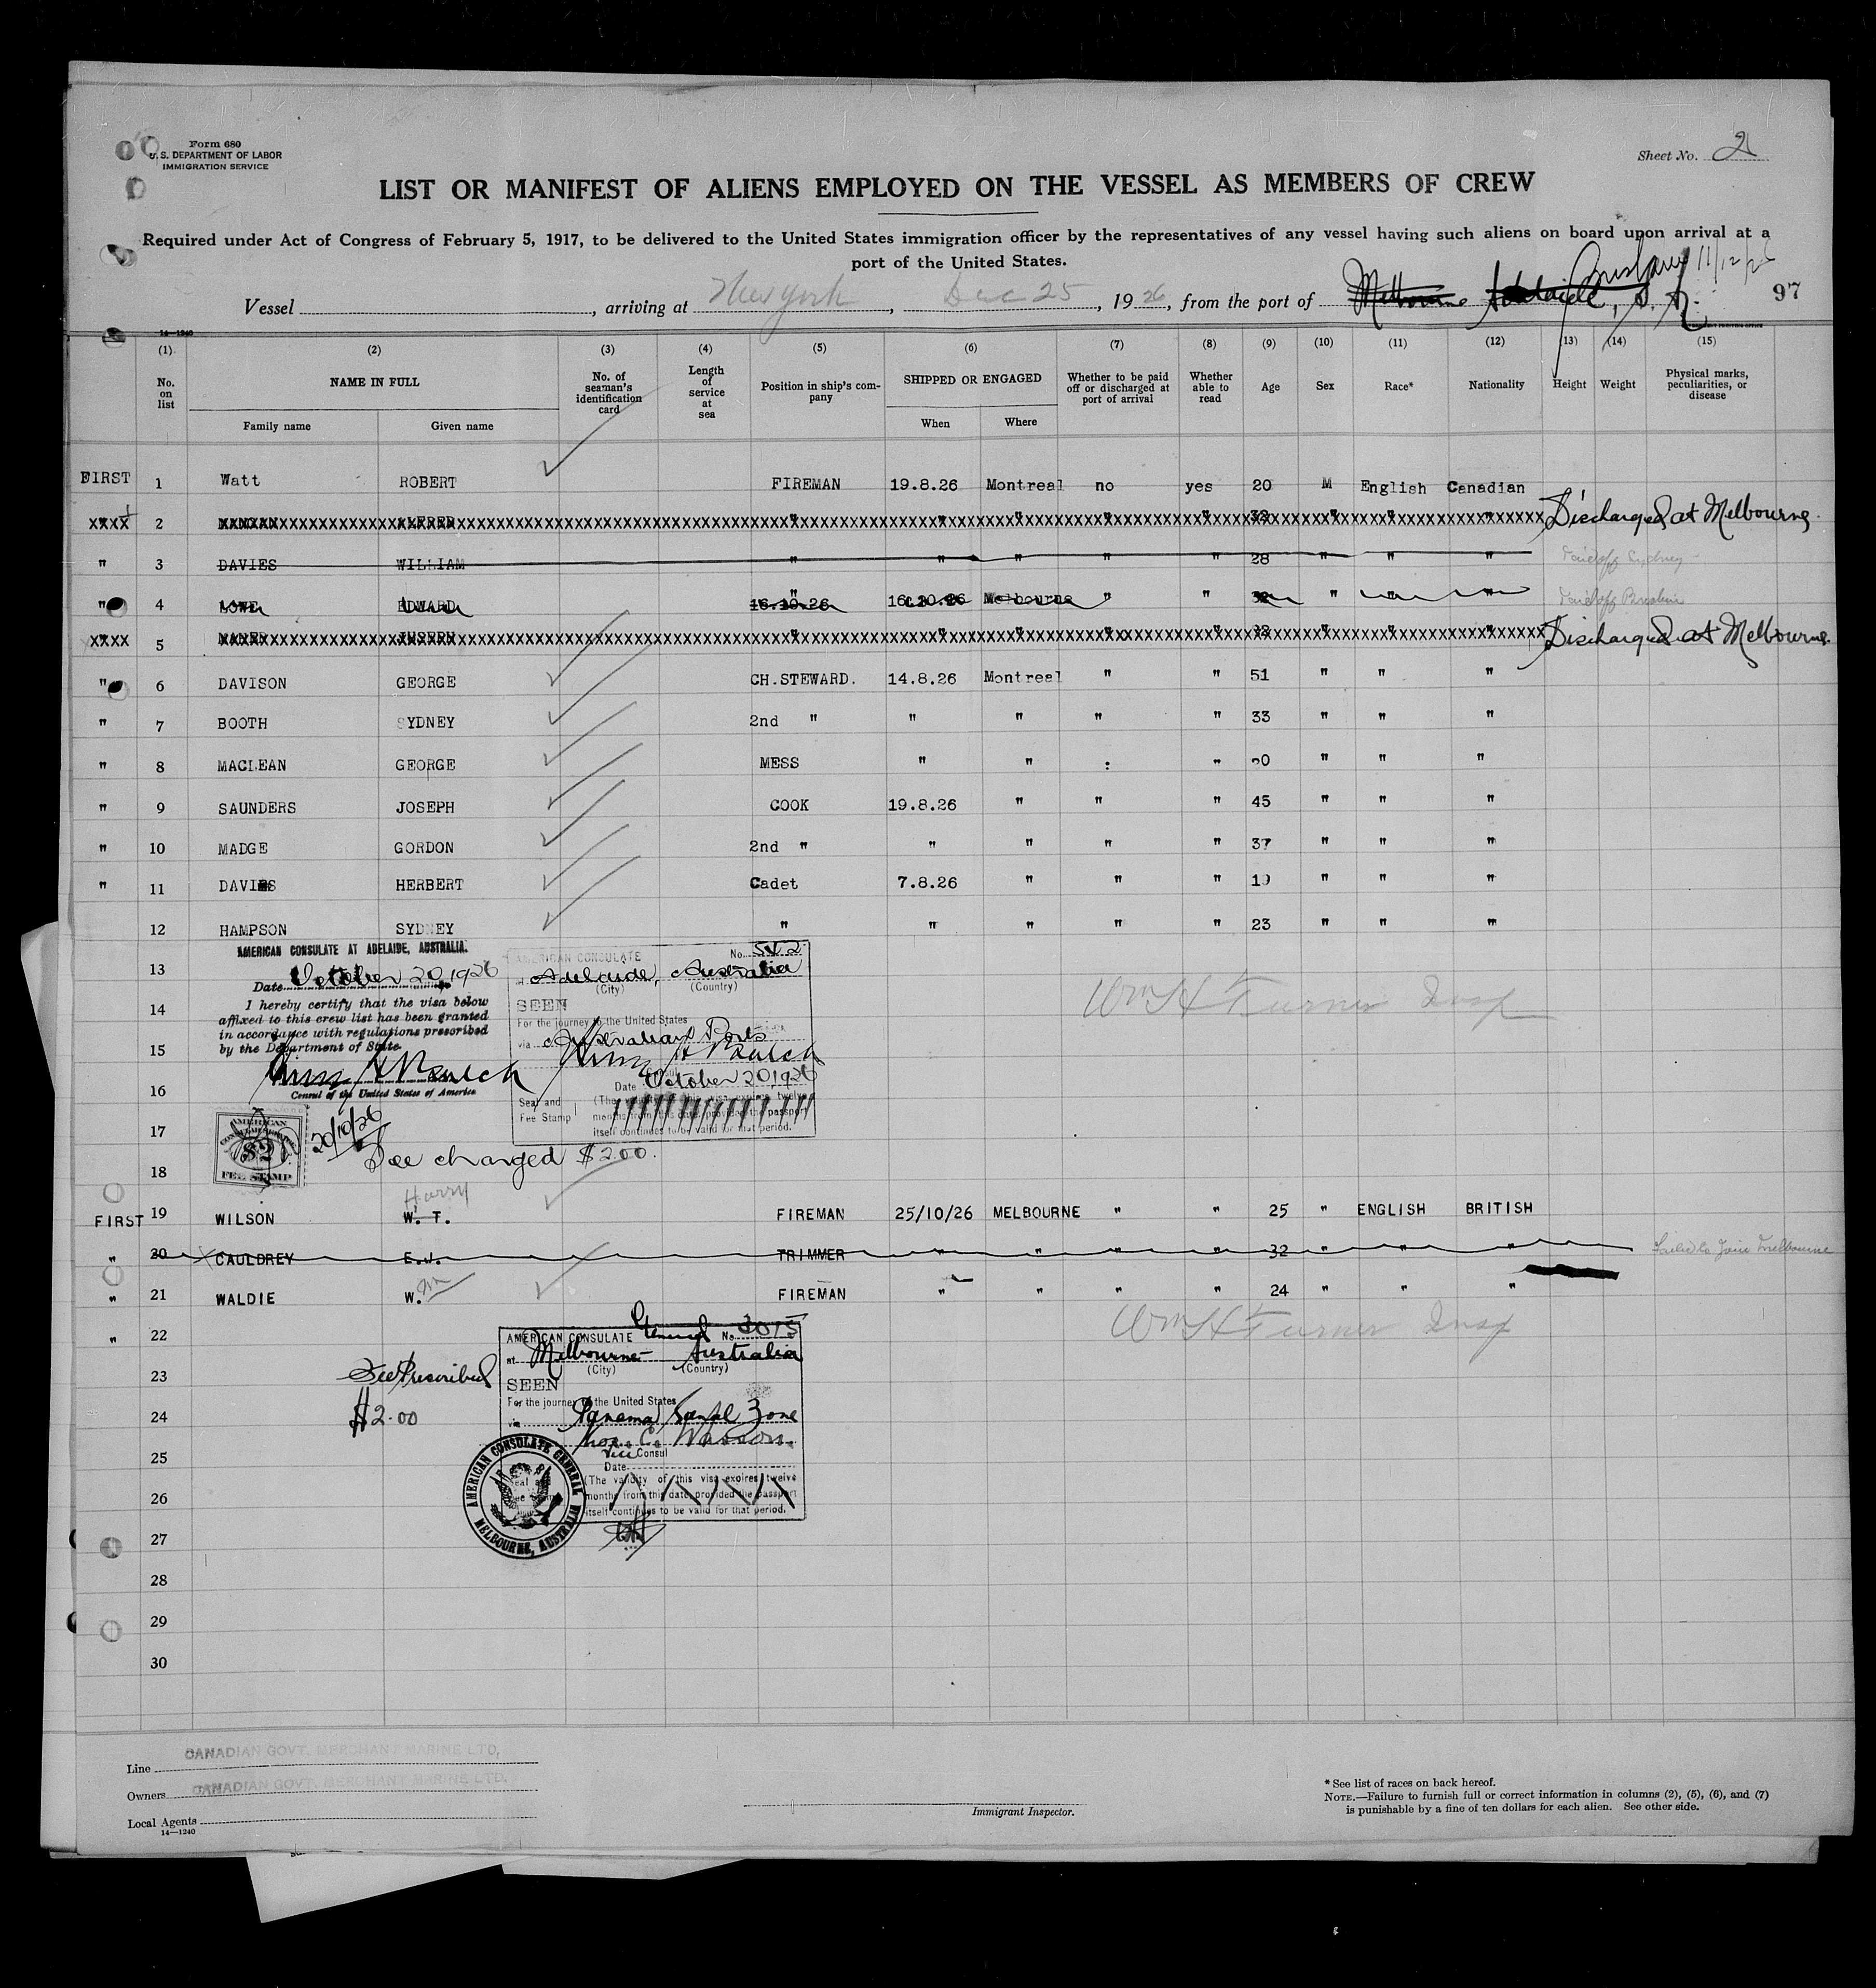 Form 680
U. S. DEPARTMENT OF LABOR
IMMIGRATION SERVICE
Sheet No. 2
LIST OR MANIFEST OF ALIENS EMPLOYED ON THE VESSEL AS MEMBERS OF CREW
Required under Act of Congress of February 5, 1917, to be delivered to the United States immigration officer by the representatives of any vessel having such aliens on board upon arrival at a
port of the United States.
Brisbane 11/12/26
Vessel , arriving at New York , Dec 25 , 19 26 , from the port of Melbourne Adelaide, S. A. 97
14—1240
(1) (2) (3) (4) (5) (6) (7) (8) (9) (10) (11) (12) (13) (14) (15)
No. on list
NAME IN FULL
Family name
Given name
No. of seaman's identification card
Length of service at sea
Position in ship's company
SHIPPED OR ENGAGED
When
Where
Whether to be paid off or discharged at port of arrival
Whether able to read
Age
Sex
Race*
Nationality
Height
Weight
Physical marks, peculiarities, or disease
FIRST 1 Watt ROBERT FIREMAN 19.8.26 Montreal no yes 20 M English Canadian
xxxx 2 ALFRED " " " " " 32 " " " Discharged at Melbourne
" 3 DAVIES WILLIAM " " " " " 28 " " " Paid off Sydney
" 4 LOWE EDWARD " 16.10.26 16.10.26 Melbourne " " " " " Paid off Brisbane
xxxx 5 JOSEPH " " " " " " " " Discharged at Melbourne
" 6 DAVISON GEORGE CH.STEWARD. 14.8.26 Montreal " " 51 " " "
" 7 BOOTH SYDNEY 2nd " " " " " 33 " " "
" 8 MACLEAN GEORGE MESS " " : " 20 " " "
" 9 SAUNDERS JOSEPH COOK 19.8.26 " " " 45 " " "
" 10 MADGE GORDON 2nd " " " " " 37 " " "
" 11 DAVIES HERBERT Cadet 7.8.26 " " " 19 " " "
12 HAMPSON SYDNEY " " " " " 23 " " "
AMERICAN CONSULATE AT ADELAIDE, AUSTRALIA.
13
Date October 20, 1926
I hereby certify that the visa below
14
affixed to this crew list has been granted
in accordance with regulations prescribed
15
by the Department of State
16
Consul of the United States of America
AMERICAN CONSULATE No. 542
at Adelaide, Australia
(City) (Country)
SEEN
For the journey to the United States
via Australian Ports
Consul
Date October 20, 1926
Seal and
Fee Stamp
(The validity of this visa expires twelve
months from this date, provided the passport
itself continues to be valid for that period.
Wm H Turner Insp
17
AMERICAN
$2
FEE STAMP
20/10/26
Fee charged $2.00.
18
Harry
FIRST 19 WILSON W. T. FIREMAN 25/10/26 MELBOURNE " " 25 " ENGLISH BRITISH
" 20 CAULDREY E.J. TRIMMER " " " " 32 " " " Failed to Join Melbourne
" 21 WALDIE W. Wm FIREMAN " " " " 24 " " "
" 22
Wm H Turner Insp
AMERICAN CONSULATE General No. 3015
at Melbourne Australia
(City) (Country)
SEEN
For the journey to the United States
via Panama Canal Zone
Thos. C. Wasson.
Vice Consul
Date
(The validity of this visa expires twelve
months from this date, provided the passport
itself continues to be valid for that period.
AMERICAN CONSULATE GENERAL
MELBOURNE, AUSTRALIA
23
Fee Prescribed
24
$2.00
25
26
27
28
29
30
Line CANADIAN GOVT. MERCHANT MARINE LTD.
Owners CANADIAN GOVT. MERCHANT MARINE LTD.
Local Agents
14—1240
Immigrant Inspector.
* See list of races on back hereof.
NOTE.—Failure to furnish full or correct information in columns (2), (5), (6), and (7)
is punishable by a fine of ten dollars for each alien. See other side.